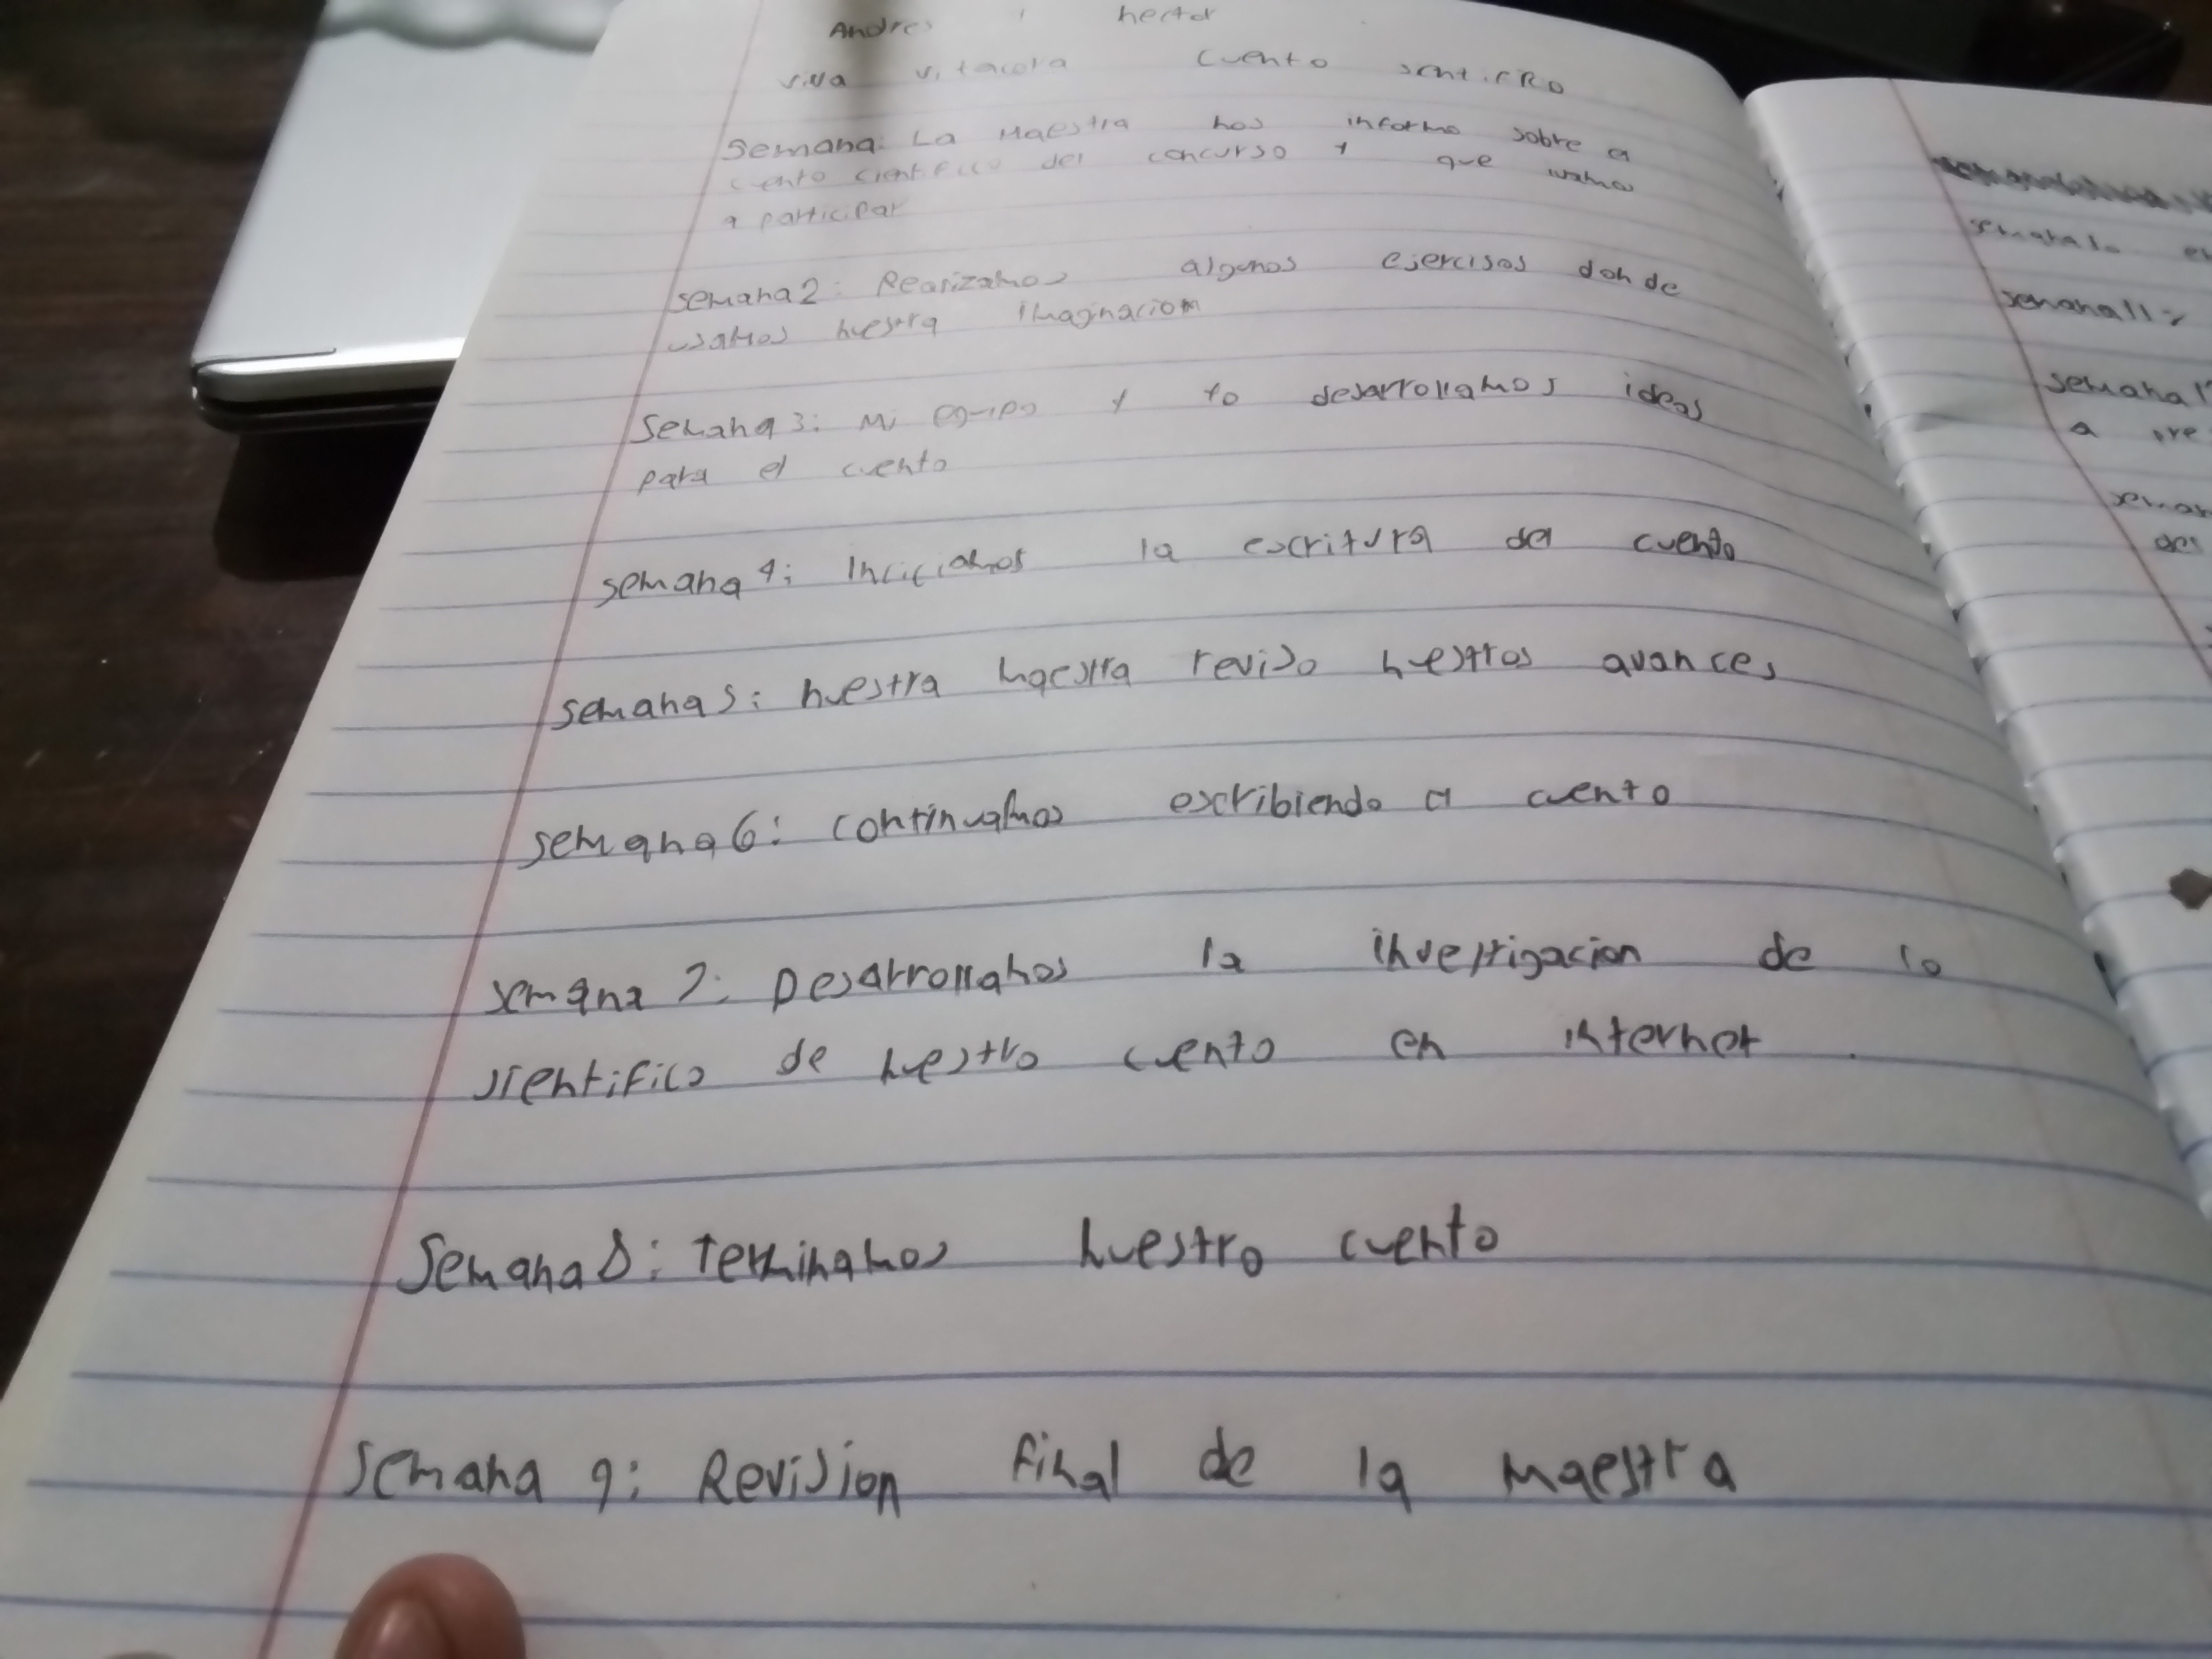 Andres y hector
vitacora cuento
Semana: La Maestra nos informo sobre el
cuento cientifico del concurso y que
a participar
semana 2: Realizamos algunos ejercisos donde
usamos nuestra imaginacion
Semana 3: Mi equipo y yo desarrollamos ideas
para el cuento
semana 4: Iniciamos la escritura del cuento
semana 5: nuestra maestra reviso nuestros avances
semana 6: continuamos escribiendo el cuento
semana 7: Desarrollamos la investigacion de lo
sientifico de nuestro cuento en internet.
Semana 8: terminamos nuestro cuento
Semana 9: Revision final de la maestra
semana 10
semana 11:
semana
a pre
seman
del